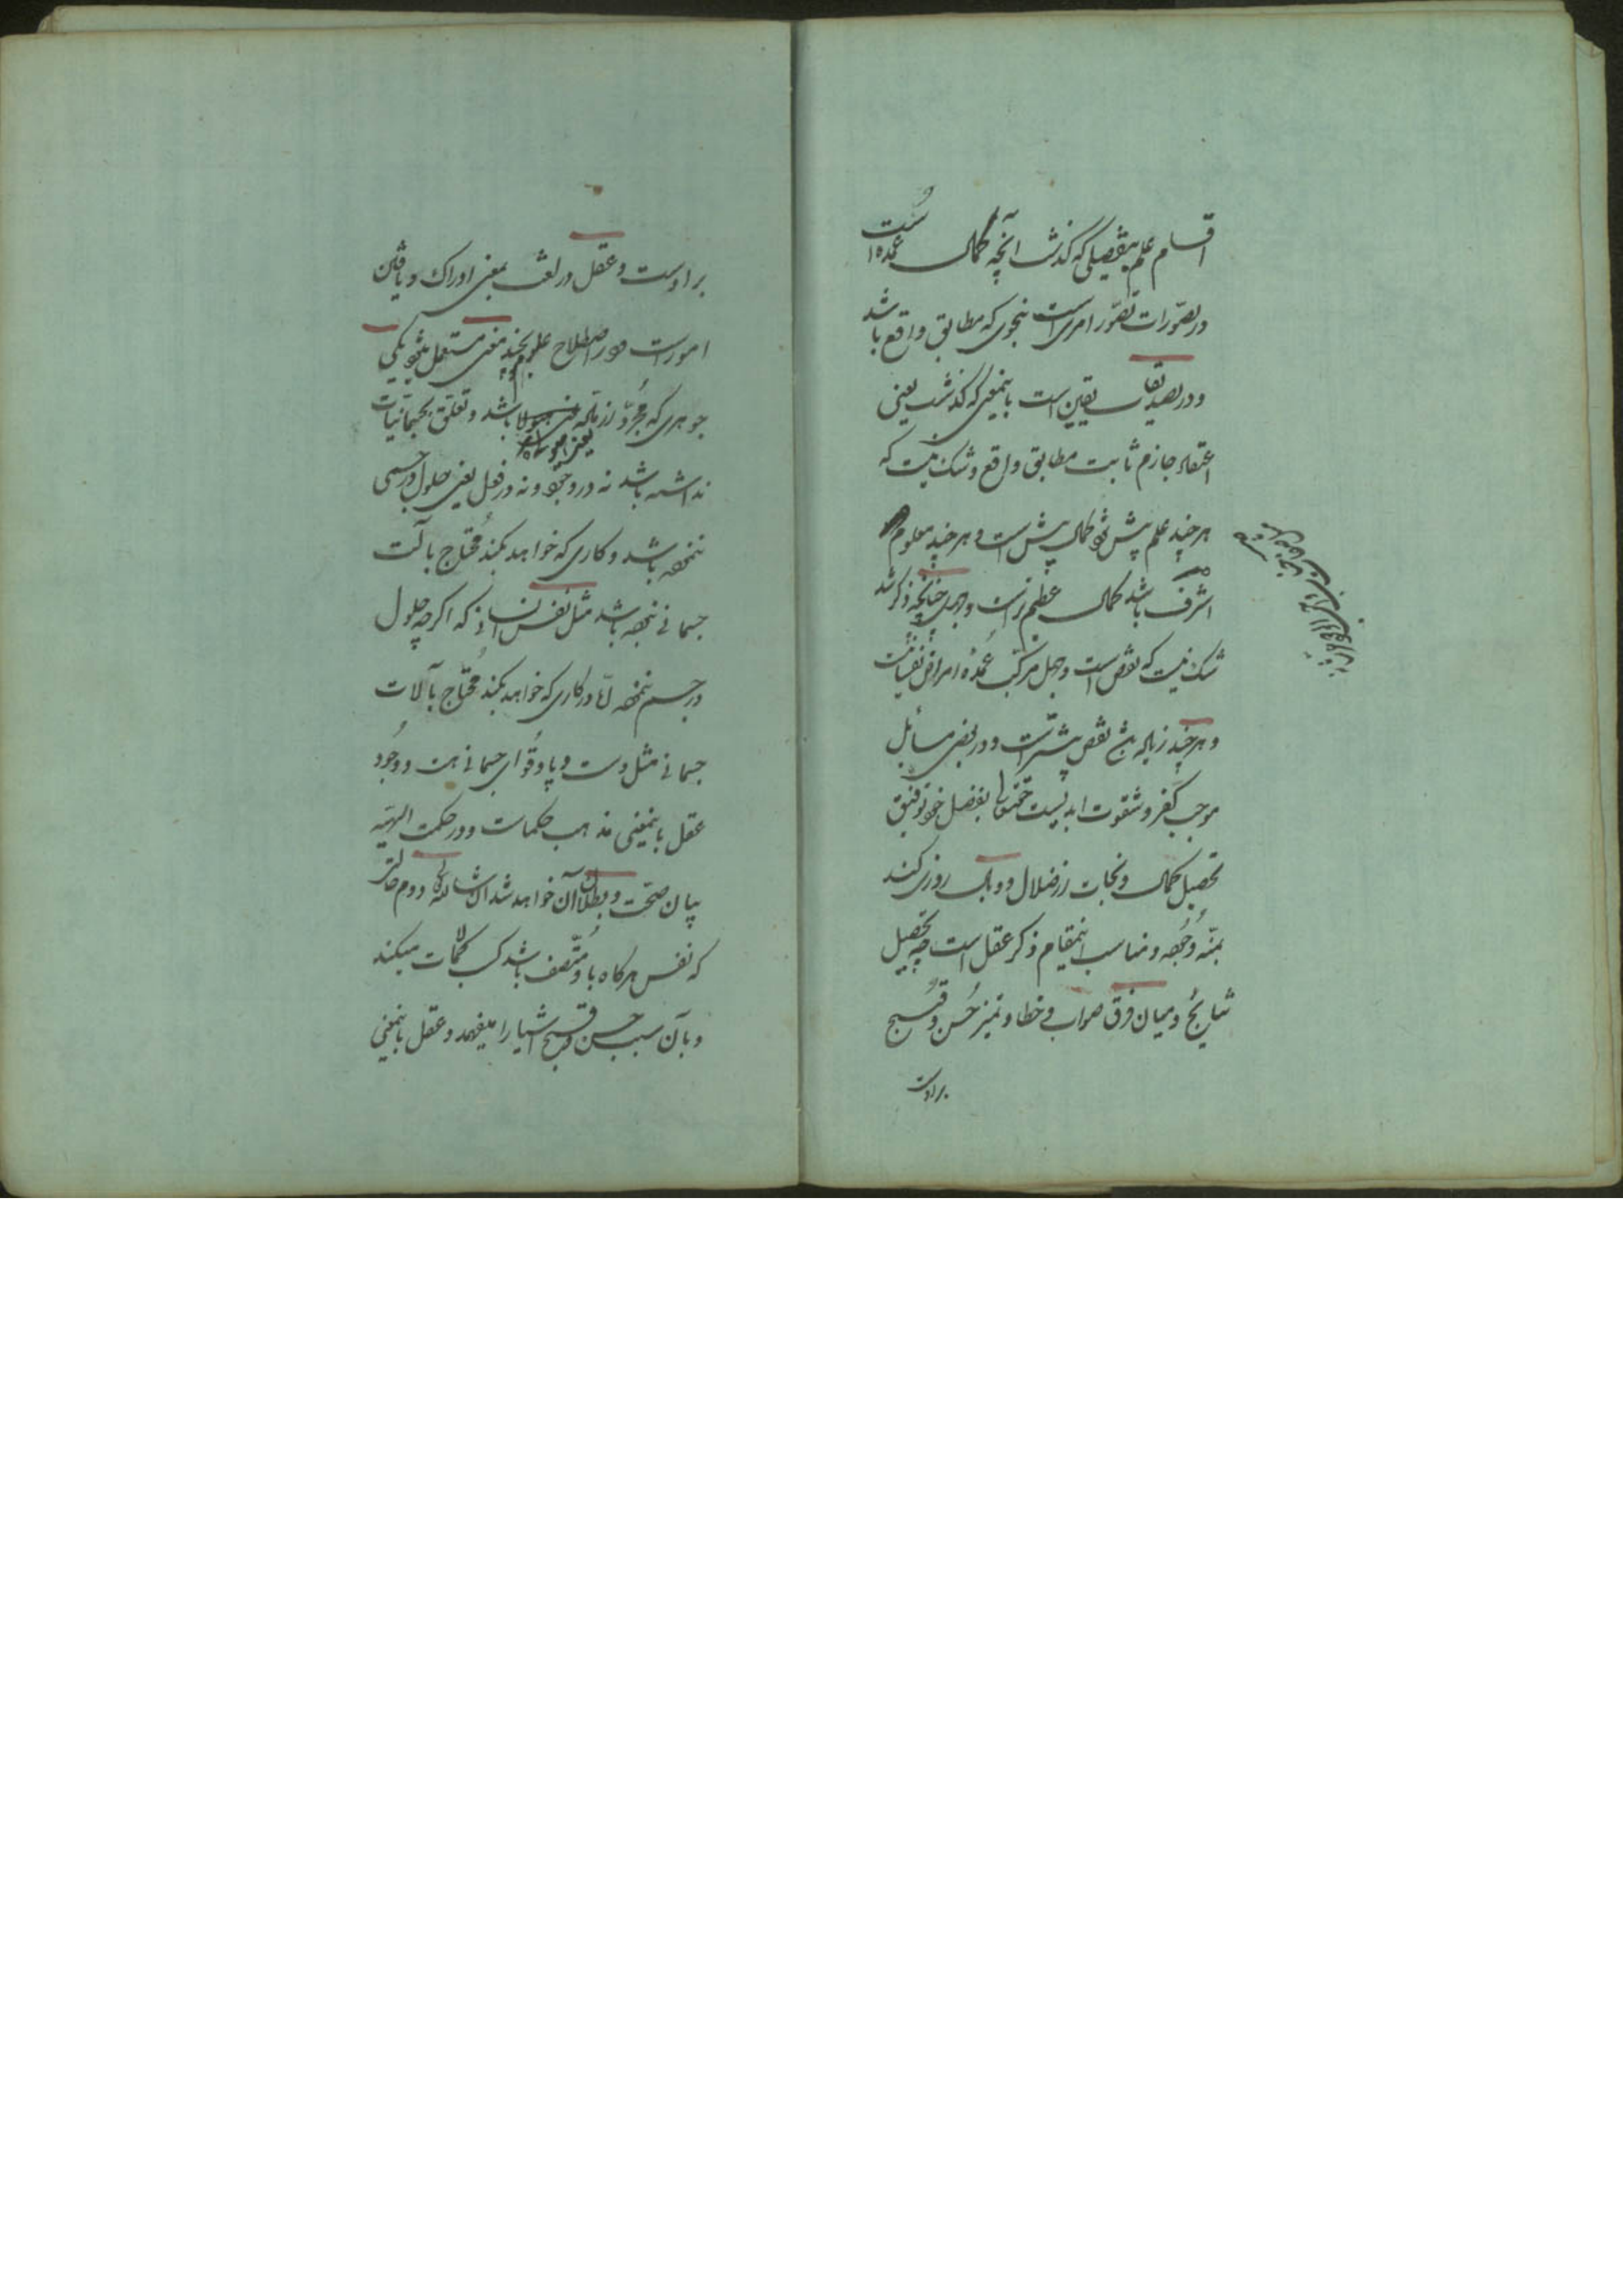 اقسام علم بتفصیلی که گذشت آنچه کمال و عمده است
در تصورات تصور امریست بنحوی که مطابق واقع باشد
و در تصدیقات یقین است باینمعنی که گذشت یعنی
اعتقاد جازم ثابت مطابق واقع و شک نیست که
هر چند علم بیش شود کمال بیش است و هر چند معلوم
اشرف باشد کمال عظیم‌تر است و جهل چنانچه ذکر شد
شک نیست که نقص است و جهل مرکب عمده امراض نفسانیست
و هر چند زیاده شود نقص بیشتر است و در بعضی مسائل
موجب کفر و شقاوت ابدیست حقتعالی بفضل خود توفیق
تحصیل کمال و نجات از ضلال و وبال روزی کند
بمنه و جوده و مناسب اینمقام ذکر عقل است چه تحصیل
نتایج و میان فرق صواب و خطا و تمیز حسن و قبیح
براوست
براوست و عقل در لغت بمعنی ادراک و یافتن
امور است و در اصطلاح علوم بچند معنی مستعمل میشود یکی
جوهری که مجرد از ماده یعنی هیولا باشد و تعلق بجسمانیات
نداشته باشد نه در وجود و نه در فعل یعنی حلول در جسمی
ننموده باشد و کاری که خواهد بکند محتاج بآلت
جسمانی نبوده باشد مثل نفس انسانی که اگرچه حلول
در جسم ننموده اما در کاری که خواهد بکند محتاج بآلات
جسمانی مثل دست و پا و قوای جسمانی هست و وجود
عقل باینمعنی مذهب حکماست و در حکمت الهیه
بیان صحت و بطلان آن خواهد شد ان شاء الله تعالی دوم حالتی
که نفس هرگاه باو متصف باشد کسب کمالات میکند
و بآن سبب حسن و قبح اشیا را میفهمد و عقل باینمعنی